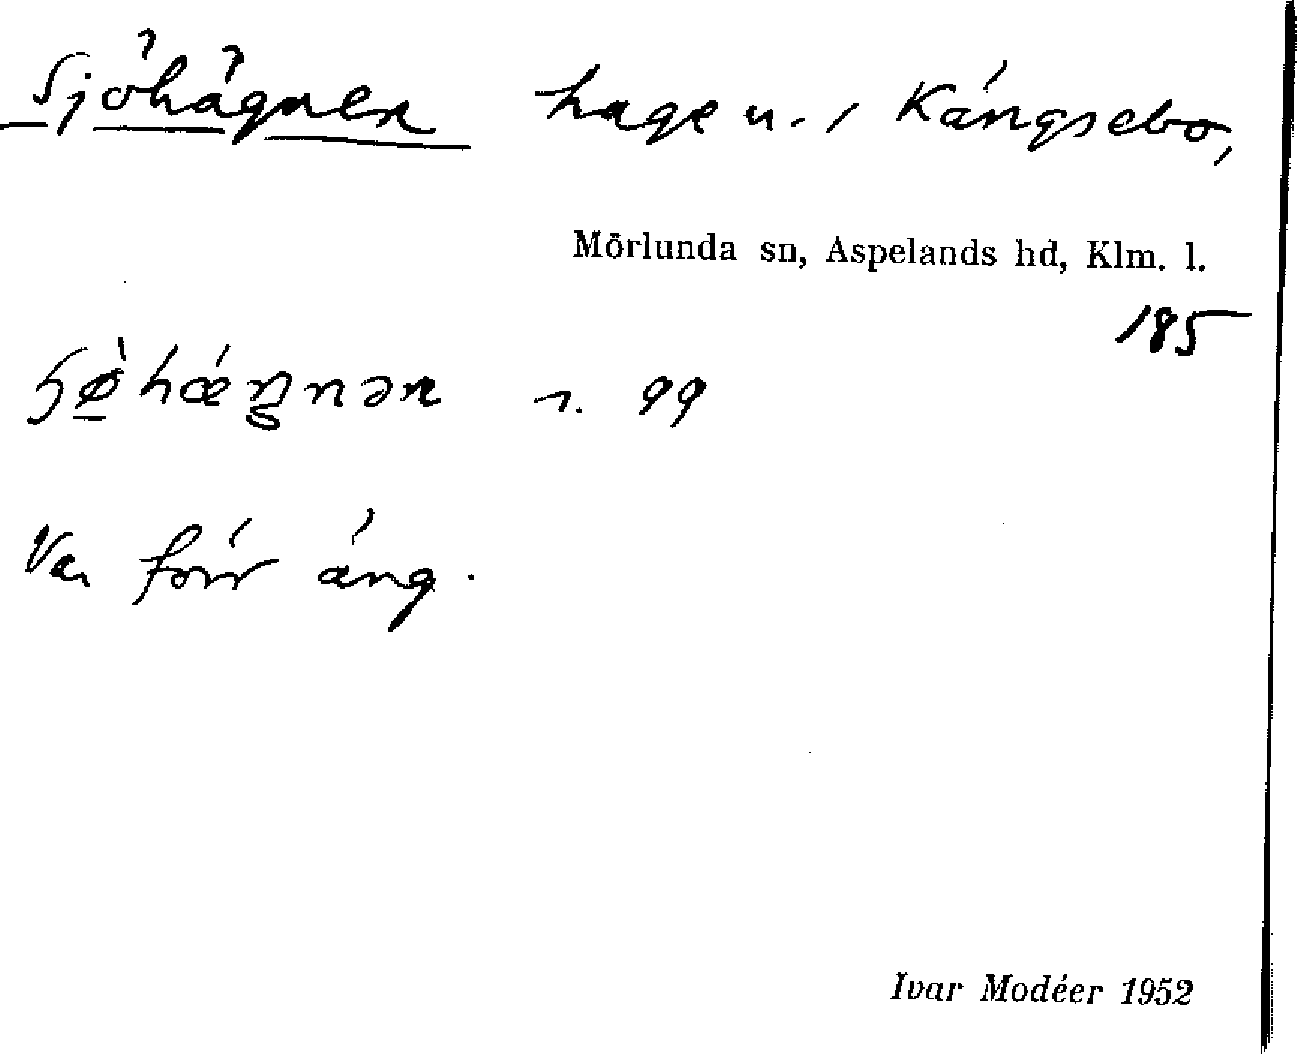 Sjöhägnen hage u. i Kängsebo,
Mörlunda sn, Aspelands hd, Klm. l.
185
r. 99
Var förr äng.
Ivar Modéer 1952